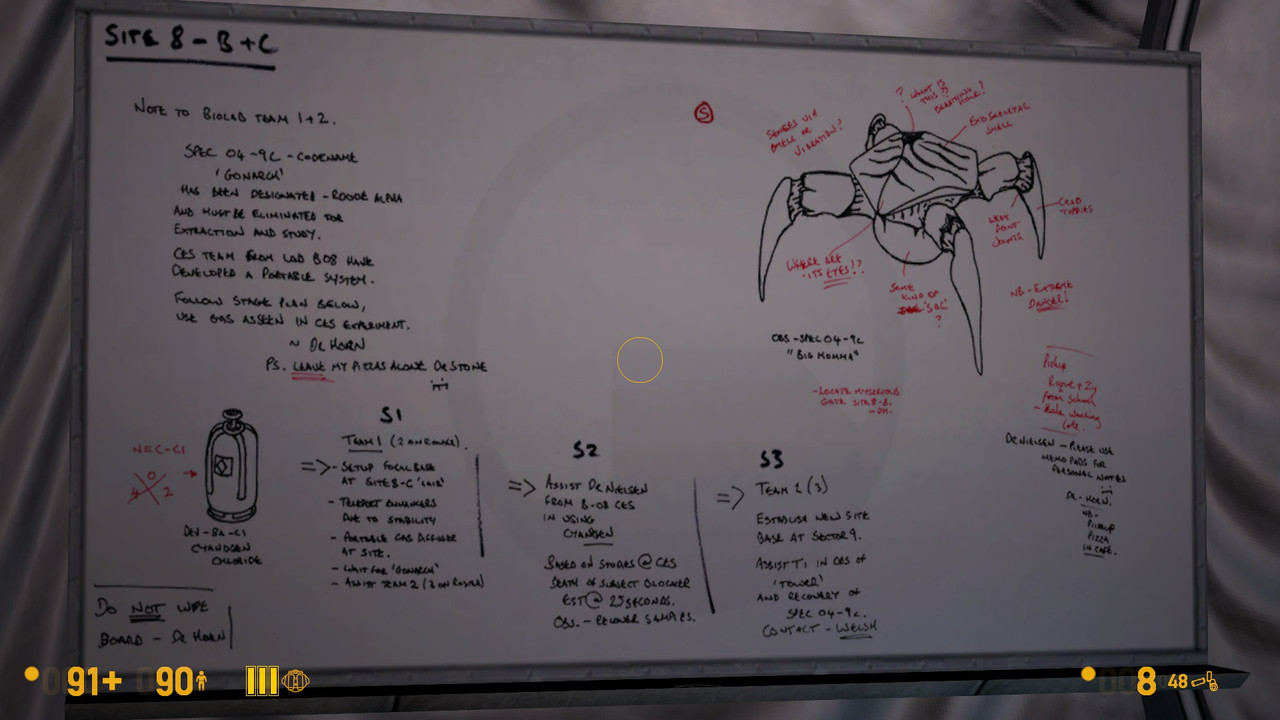 SITE 8 - B + C
NOTE TO BIOLAB TEAM 1 + 2.
SPEC 04-9C - CODENAME
'GONARCH'
HAS BEEN DESIGNATED - ROGUE ALPHA
AND MUST BE ELIMINATED FOR
EXTRACTION AND STUDY.
CES TEAM FROM LAB B08 HAVE
DEVELOPED A PORTABLE SYSTEM.
FOLLOW STAGE PLAN BELOW,
USE GAS AS SEEN IN CES EXPERIMENT.
~ DR HORN
PS. LEAVE MY PIZZAS ALONE DR STONE
N≡C-Cl
0
4 2
DEV-8A-C1
CYANOGEN
CHLORIDE
DO NOT WIPE
BOARD - DR HORN
S1
TEAM 1 (2 ON ROVER).
=> - SETUP FOCAL BASE
AT SITE 8-C 'LAIR'
- TELEPORT
DUE TO STABILITY
- PORTABLE GAS DIFFUSER
AT SITE.
- WAIT FOR 'GONARCH'
- ASSIST TEAM 2 (3 ON ROSTER)
S2
=> ASSIST DR NIELSEN
FROM B-08 CES
IN USING
CYANOGEN
BASED ON STUDIES @ CES
DEATH OF SUBJECT
EST @ 25 SECONDS.
OBS. - RECOVER SAMPLES.
S3
=> TEAM 2 (3)
ESTABLISH NEW SITE
BASE AT SECTOR 9.
ASSIST T1 IN OBS OF
'TOWER'
AND RECOVERY OF
SPEC 04-9C.
CONTACT - WELSH
S
SENSES VIA
SMELL OR
VIBRATION?
? WHAT IS
THIS??
BREATHING
HOLE?
EXOSKELETAL
SHELL
WEAK
POINT
JOINTS
WHERE ARE
ITS EYES!?
SOME
KIND OF
'SAC'
?
NB - EXTREME
DANGER!
OBS - SPEC 04-9C
"BIG MOMMA"
- LOCATE MYSTERIOUS
GATE SITE 8-B.
- DH.
Pickup
from school
DR NIELSEN - PLEASE USE
MEMO PADS FOR
PERSONAL NOTES
DR - HORN.
NB -
PICKUP
PIZZA
IN CAFE.
91+ 90
8 48